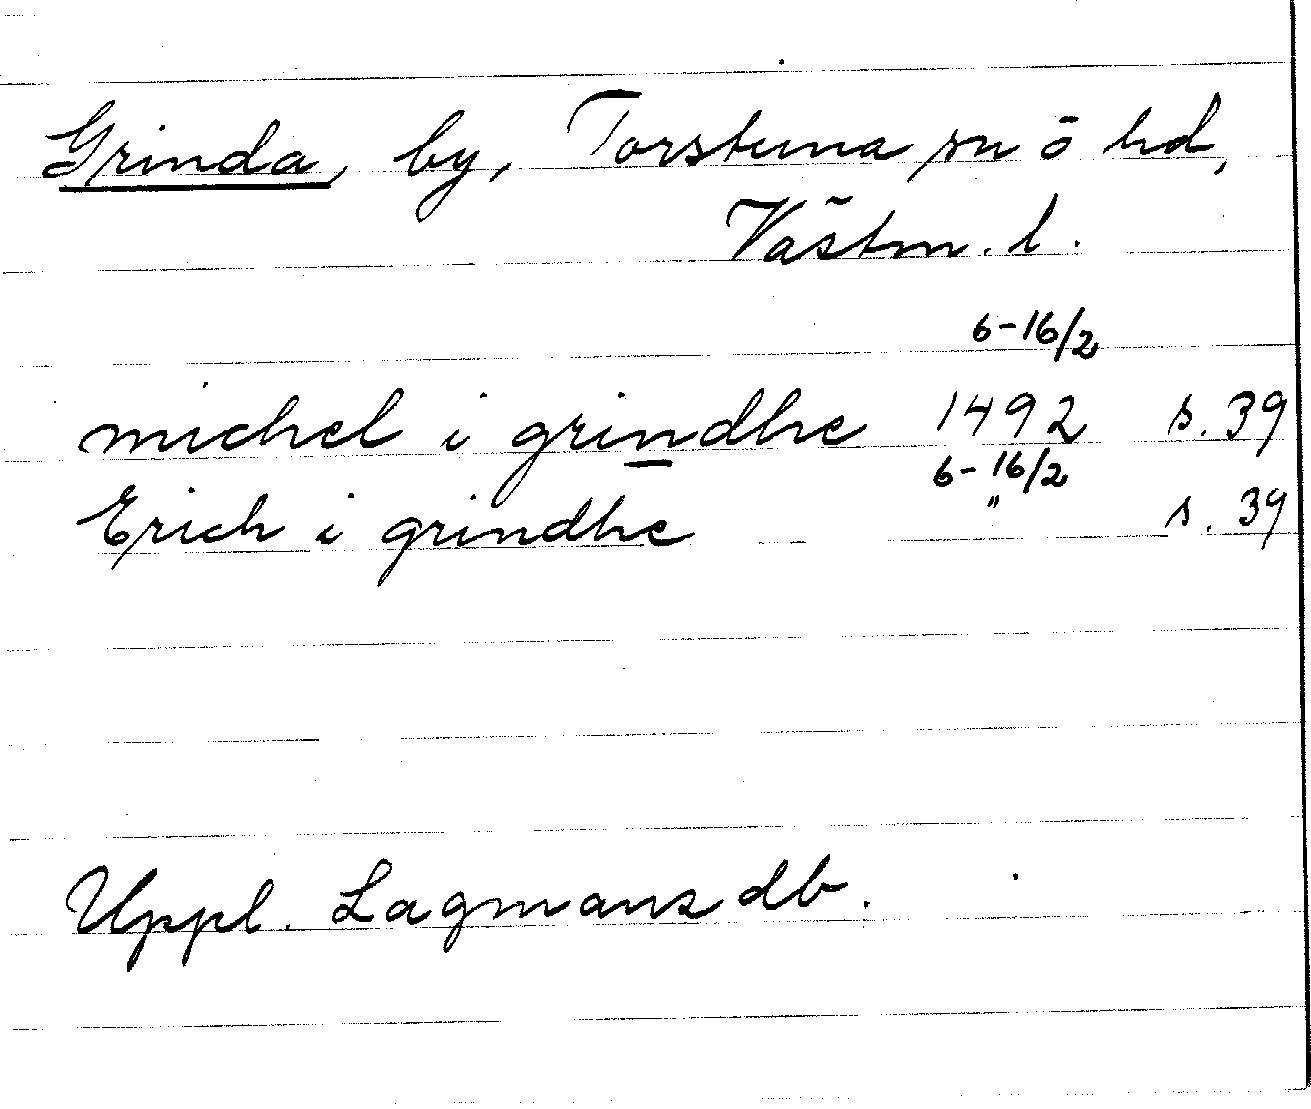 Grinda, by, Torstuna sn ō hd,
Västm. l.
6-16/2
michel i grindhe 1492 s. 39
6-16/2
Erich i grindhe " s. 39
Uppl. Lagmansdb.